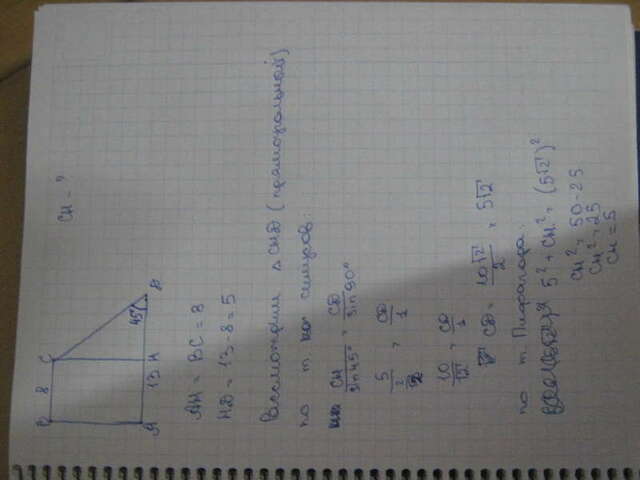 CH - ?
B 8 C
45°
A 13 H D
AH = BC = 8
HD = 13 - 8 = 5
Рассмотрим △ CHD (прямоугольный)
по т. синусов:
CH/sin45° = CD/sin90°
5/(√2/2) = CD/1
10/√2 = CD/1
CD = 10√2/2 = 5√2
по т. Пифагора:
5² + CH² = (5√2)²
CH² = 50 - 25
CH² = 25
CH = 5